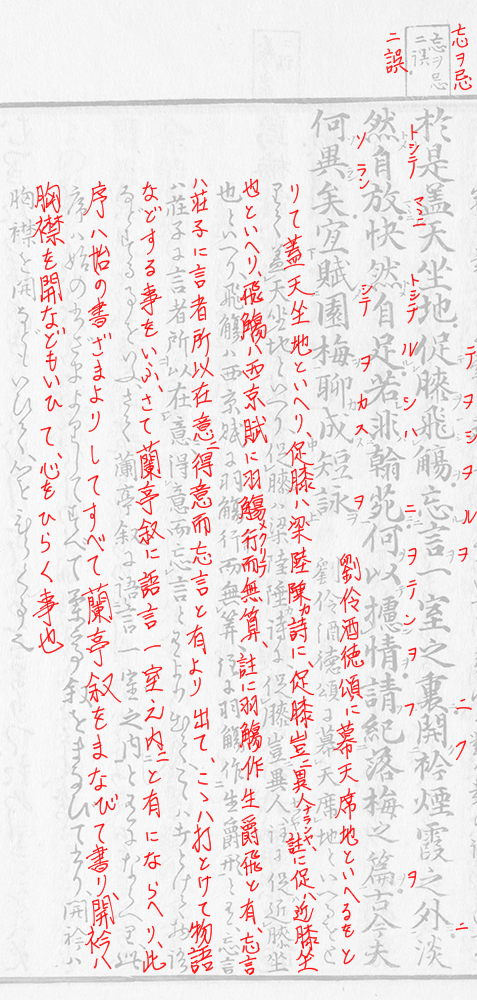 忘ヲ忌
ニ誤
於是蓋天坐地促膝飛觴忘言一室之裏開衿煙霞之外淡
然自放快然自足若非翰苑何以攄情請紀落梅之篇古今夫
何異矣宜賦園梅聊成短詠
劉伶酒徳頌に幕天席地といへるをと
りて蓋天坐地といへり、促膝ハ梁陸陳カ詩に、促膝豈ニ異人ナランヤ、註に促ハ近膝坐
也といへり、飛觴ハ西京賦に羽觴行メグリテ而無算、註に羽觴作生爵飛と有、忘言
ハ荘子に言者所以在意ニ得意而忘言と有より出て、こゝハ打とけて物語
などする事をいふ、さて蘭亭叙に語言一室之内ニと有にならへり、此
序ハ始の書ざまよりしてすべて蘭亭叙をまなびて書り、開衿ハ
胸襟を開などもいひて、心をひらく事也